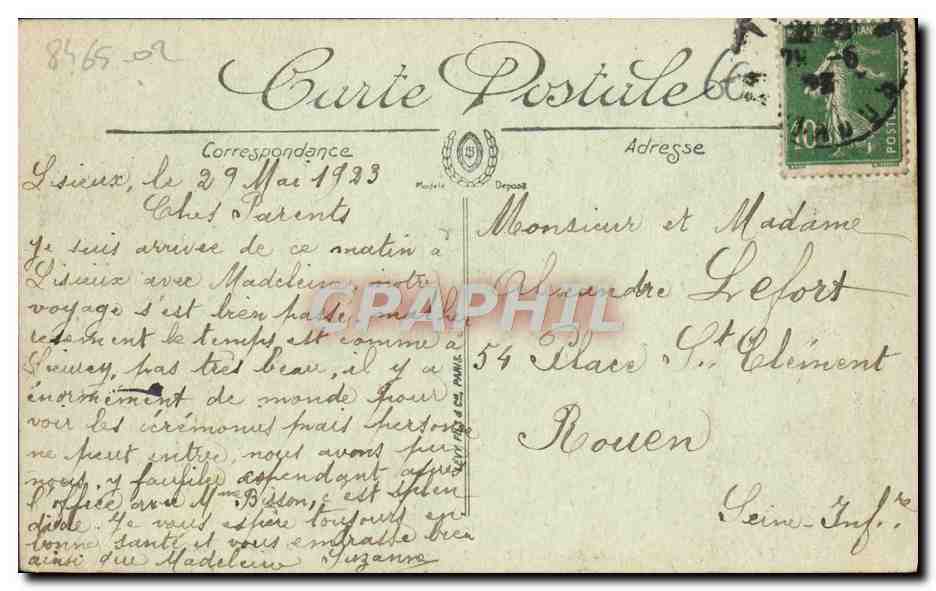 8465-02
66
Carte Postale
Correspondance
Adresse
Modèle Déposé
10
POSTES
Lisieux, le 29 Mai 1923
Chers Parents
Je suis arrivée de ce matin à
Lisieux avec Madeleine, notre
voyage s'est bien passé, malheu
resement le temps est comme à
pas très beau, il y a
énormément de monde pour
voir les cérémonies mais personne
ne peut entrer, nous avons pu
nous y faufiler cependant après
l'office avec Mme Bisson, c'est splen
dide. Je vous espère toujours en
bonne santé et vous embrasse bien
ainsi que Madeleine Suzanne
LEVY FILS & Cie, PARIS
Monsieur et Madame
Alexandre Lefort
54 Place St Clément
Rouen
Seine-Infre
CPAPHIL